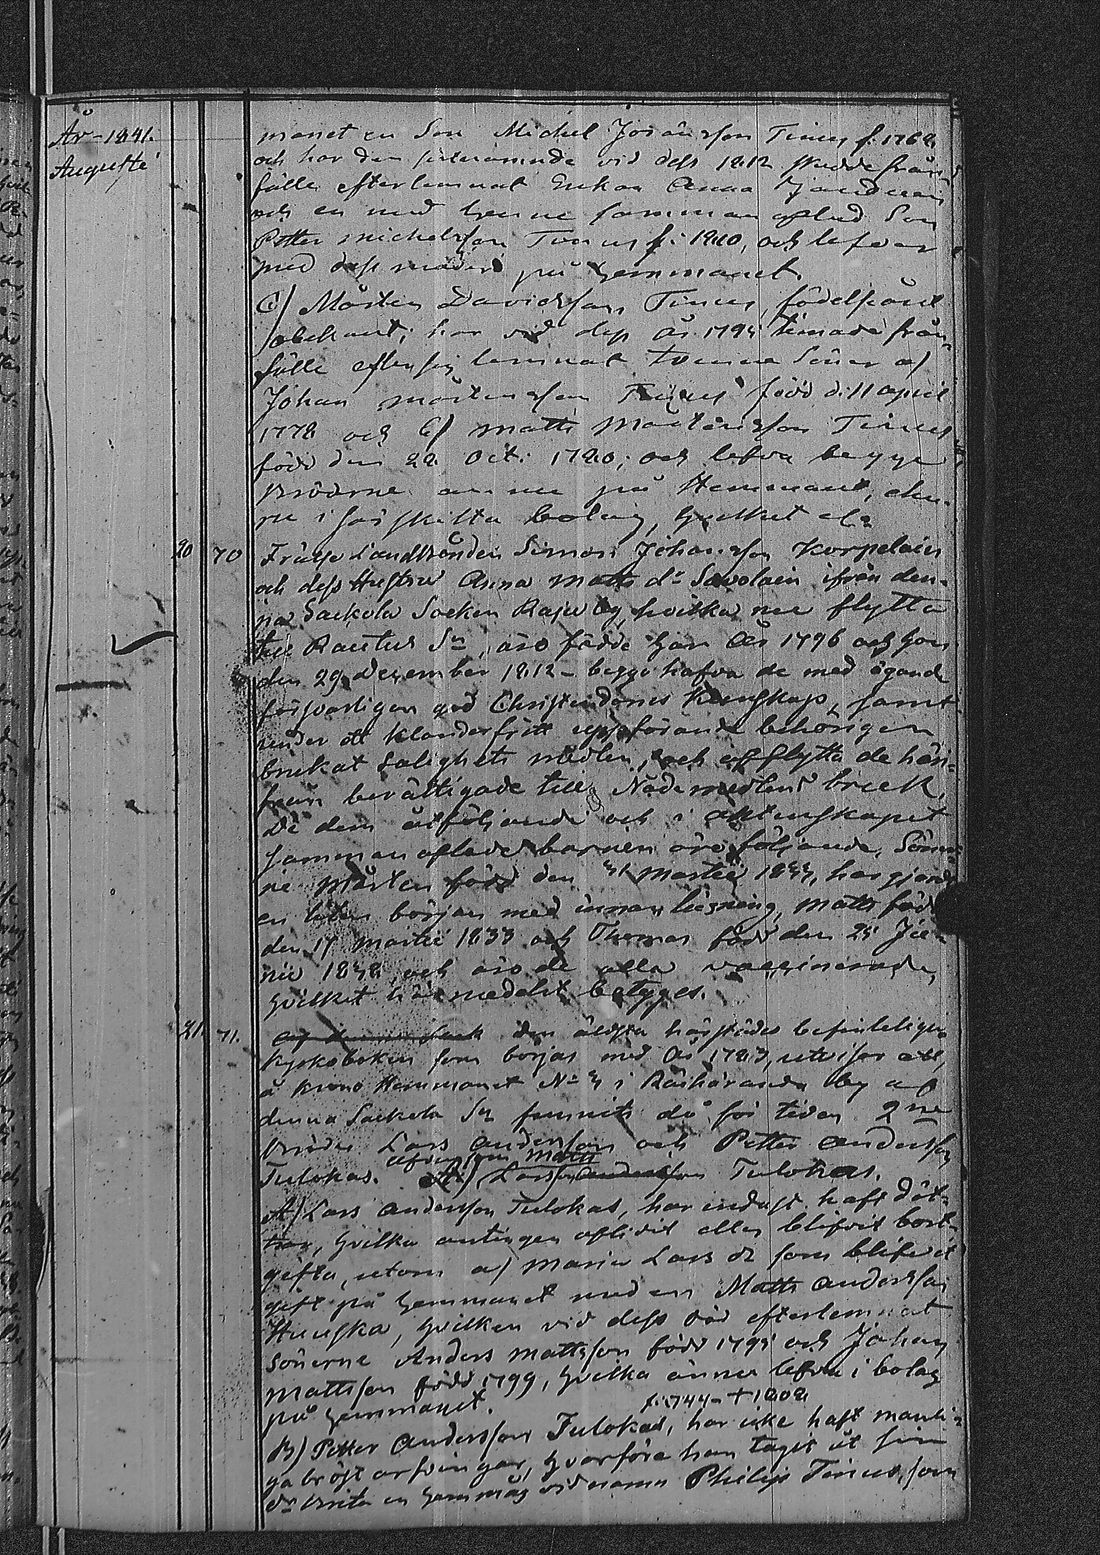 År 1841.
Augusti
manet en Son Michel Johansson Tinus f. 1768
och har den sistnämnde vid dess 1812 skedde från
fälle efterlemnat Enkan Anna
och en med henne sammanaflad Son
Petter Michelsson Tinus f. 1810, och lefver
med dess moder på hemmanet.
C) Mårten Davidsson Tinus, födelseåret
obekant; har vid dess år 1795 timade från-
fälle efter sig lemnat tvenne Söner a)
Johan Mårtensson Tinus född d. 11 April
1778 och b) Matts Mårtensson Tinus
född den 22 Oct. 1780; och lefva begge
bröderne ännu på Hemmanet, ehu-
ru i särskilta bolag, hvilket
20 70 Frälse Landbonden Simon Johansson Korpelain
och dess Hustru Anna Matts dr Savolain ifrån den-
na Sackola Socken by, hvilka nu flytta
till Rautus Sn, äro födde han År 1796 och hon
den 29 December 1812 - begge hafva de med ägande
försvarligen god Christendoms Kunskap, samt
under ett klanderfritt uppförande behörigen
brukat Salighets medlen, och afflytta de här-
ifrån berättigade till Nådemedlens bruk.
De dem åtföljande och i äktenskapet
sammanaflade barnen äro följande, Söner-
ne Mårten född den Martii har gjordt
en liten början med innanläsning, Matts född
den 17 Martii 1833 och Thomas född den 25 Ju-
nii 1838 och äro de alla vaccinerade,
hvilket härmedelst betyges.
21 71. den äldsta härstädes befinteliga
kyrkoboken som börjas med År 1783, utvisar att,
å Krono Hemmanet No 4 i by af
denna Sackola Sn funnits då för tiden 2ne
bröder Lars Andersson och Petter Andersson
Tulokas. Lars Andersson Tulokas.
A) Lars Andersson Tulokas, har endast haft döt-
trar, hvilka antingen aflidit eller blifvit bort-
gifta, utom a) Maria Lars dr som blifvit
gift på hemmanet med en Matts Andersson
Hunska, hvilken vid dess död efterlemnat
Sönerne Anders Mattsson född 1795 och Johan
Mattsson född 1799, hvilka ännu lefva i bolag
på hemmanet.
f. 1744 - † 1808
B) Petter Andersson Tulokas, har icke haft manli-
ga bröst arfvingar, hvarföre han tagit åt sin
dr Brita en hemmåg vid namn Philip Tinus, som